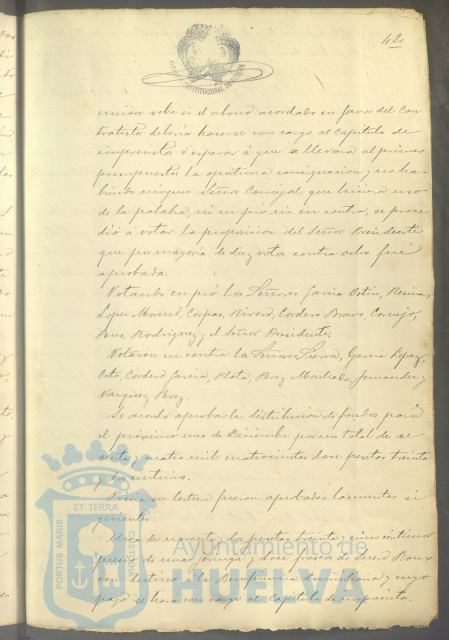 42
cusión sobre si el abono acordado en favor del Con
tratista debería hacerse con cargo al Capítulo de
imprevistos ó esperar á que se llevara al primer
presupuesto la oportuna consignacion y no ha-
biendo ningun Señor Concejal que hiciera uso
de la palabra, ni en pró ni en contra, se proce
dió á votar la proposicion del Señor Presidente
que por mayoría de diez votos contra ocho fué
aprobada.
Votando en pró los Señores Garcia Ortiz,
Lopez Moreno, Corpas, Rivero, Cordero Bravo, Cornejo,
Rodriguez y el Señor Presidente.
Votaron en contra los Señores Sierra, Garcia Lopez,
Coto, Cordero Garcia, Plata, Perez Machado, Fernandez y
Vazquez Perez.
Se acordó aprobar la distribucion de fondos para
el próximo mes de Diciembre por un total de se
senta y cuatro mil cuatrocientos doce pesetas treinta
y céntimos.
Prévia su lectura fueron aprobadas las cuentas si
guientes:
Una de noventa y dos pesetas treinta y cinco céntimos
precio de una y doce frascos de
con destino á la Beneficencia domiciliaria y cuyo
pago se hará con cargo al Capítulo de imprevistos.
PORTUS MARIS ET TERRAE CUSTODIA
Ayuntamiento de
HUELVA